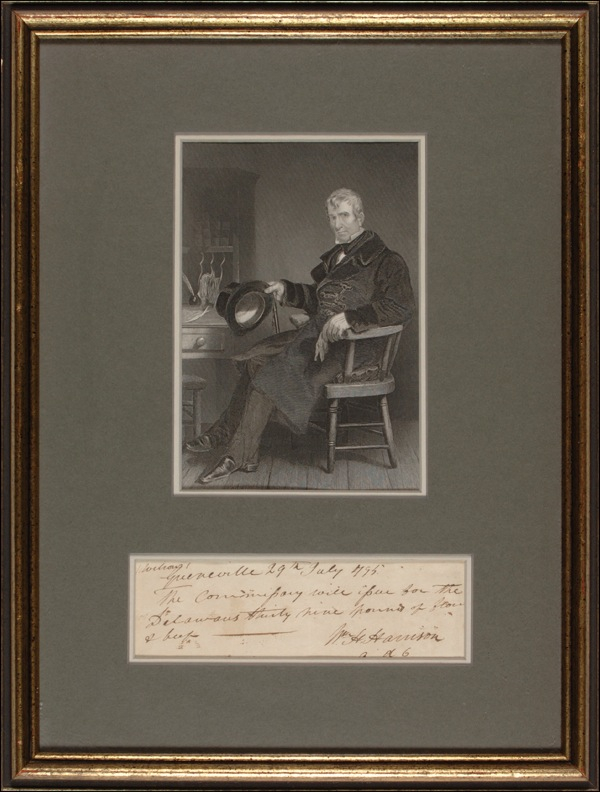 Greeneville 29th July 1795
The Commissary will issue for the
Delawars thirty nine pounds of flour
& beef
Wm H. Harrison
a d C